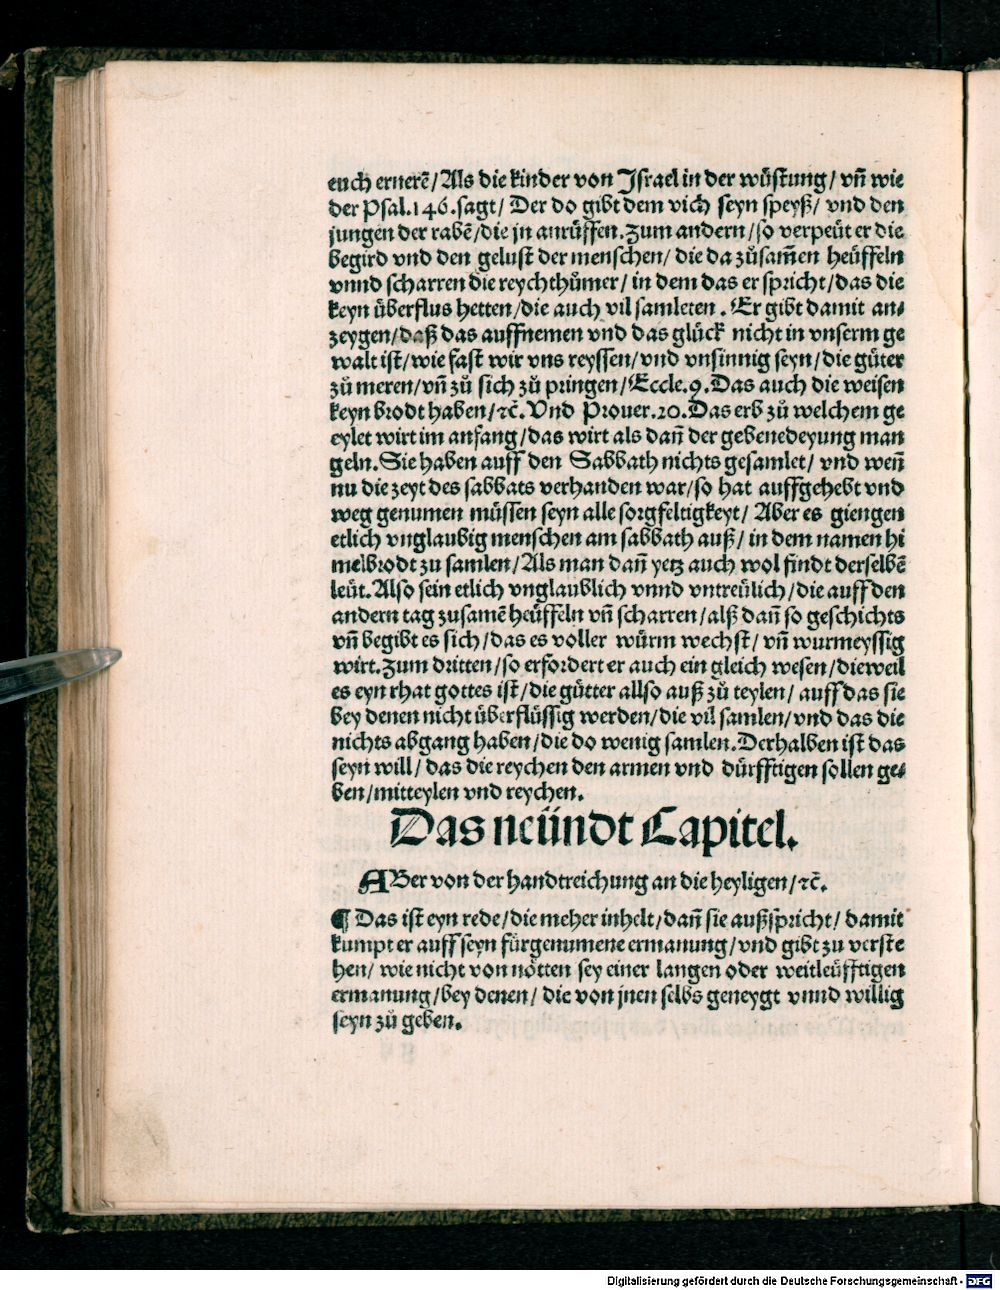 euch ernerē/Als die kinder von Israel in der wüstung/ vñ wie
der Psal.146.sagt/ Der do gibt dem vich seyn speyß/ vnd den
jungen der rabē/die jn anrüffen.Zum andern/so verpeüt er die
begird vnd den gelust der menschen/ die da zůsam̄en heüffeln
vnnd scharren die reychthůmer/ in dem das er spricht/das die
keyn überflus hetten/die auch vil samleten . Er gibt damit an⸗
zeygen/daß das auffnemen vnd das glück nicht in vnserm ge
walt ist/wie fast wir vns reyssen/vnd vnsinnig seyn/die güter
zů meren/vñ zů sich zů pringen/Eccle.9.Das auch die weisen
keyn brodt haben/ꝛc̄. Vnd Prouer.20.Das erb zů welchem ge
eylet wirt im anfang/das wirt als dañ der gebenedeyung man
geln.Sie haben auff den Sabbath nichts gesamlet/ vnd weñ
nu die zeyt des sabbats verhanden war/so hat auffgehebt vnd
weg genumen müssen seyn alle sorgfeltigkeyt/ Aber es giengen
etlich vnglaubig menschen am sabbath auß/ in dem namen hi
melbrodt zu samlen/Als man dañ yetz auch wol findt derselbē
leüt.Also sein etlich vnglaublich vnnd vntreülich/die auff den
andern tag zusamē heüffeln vñ scharren/alß dañ so geschichts
vñ begibt es sich/das es voller würm wechst/vñ wurmeyssig
wirt.Zum dritten/so erfordert er auch ein gleich wesen/dieweil
es eyn rhat gottes ist/die gütter allso auß zů teylen/ auff das sie
bey denen nicht überflüssig werden/die vil samlen/vnd das die
nichts abgang haben/die do wenig samlen.Derhalben ist das
seyn will/das die reychen den armen vnd dürfftigen sollen ge⸗
ben/mitteylen vnd reychen.
Das neündt Capitel.
ABer von der handtreichung an die heyligen/ꝛc̄.
¶ Das ist eyn rede/die meher inhelt/dañ sie außspricht/ damit
kumpt er auff seyn fürgenumene ermanung/vnd gibt zu verste
hen/ wie nicht von nötten sey einer langen oder weitleüfftigen
ermanung/bey denen/ die von jnen selbs geneygt vnnd willig
seyn zů geben.
Digitalisierung gefördert durch die Deutsche Forschungsgemeinschaft - DFG